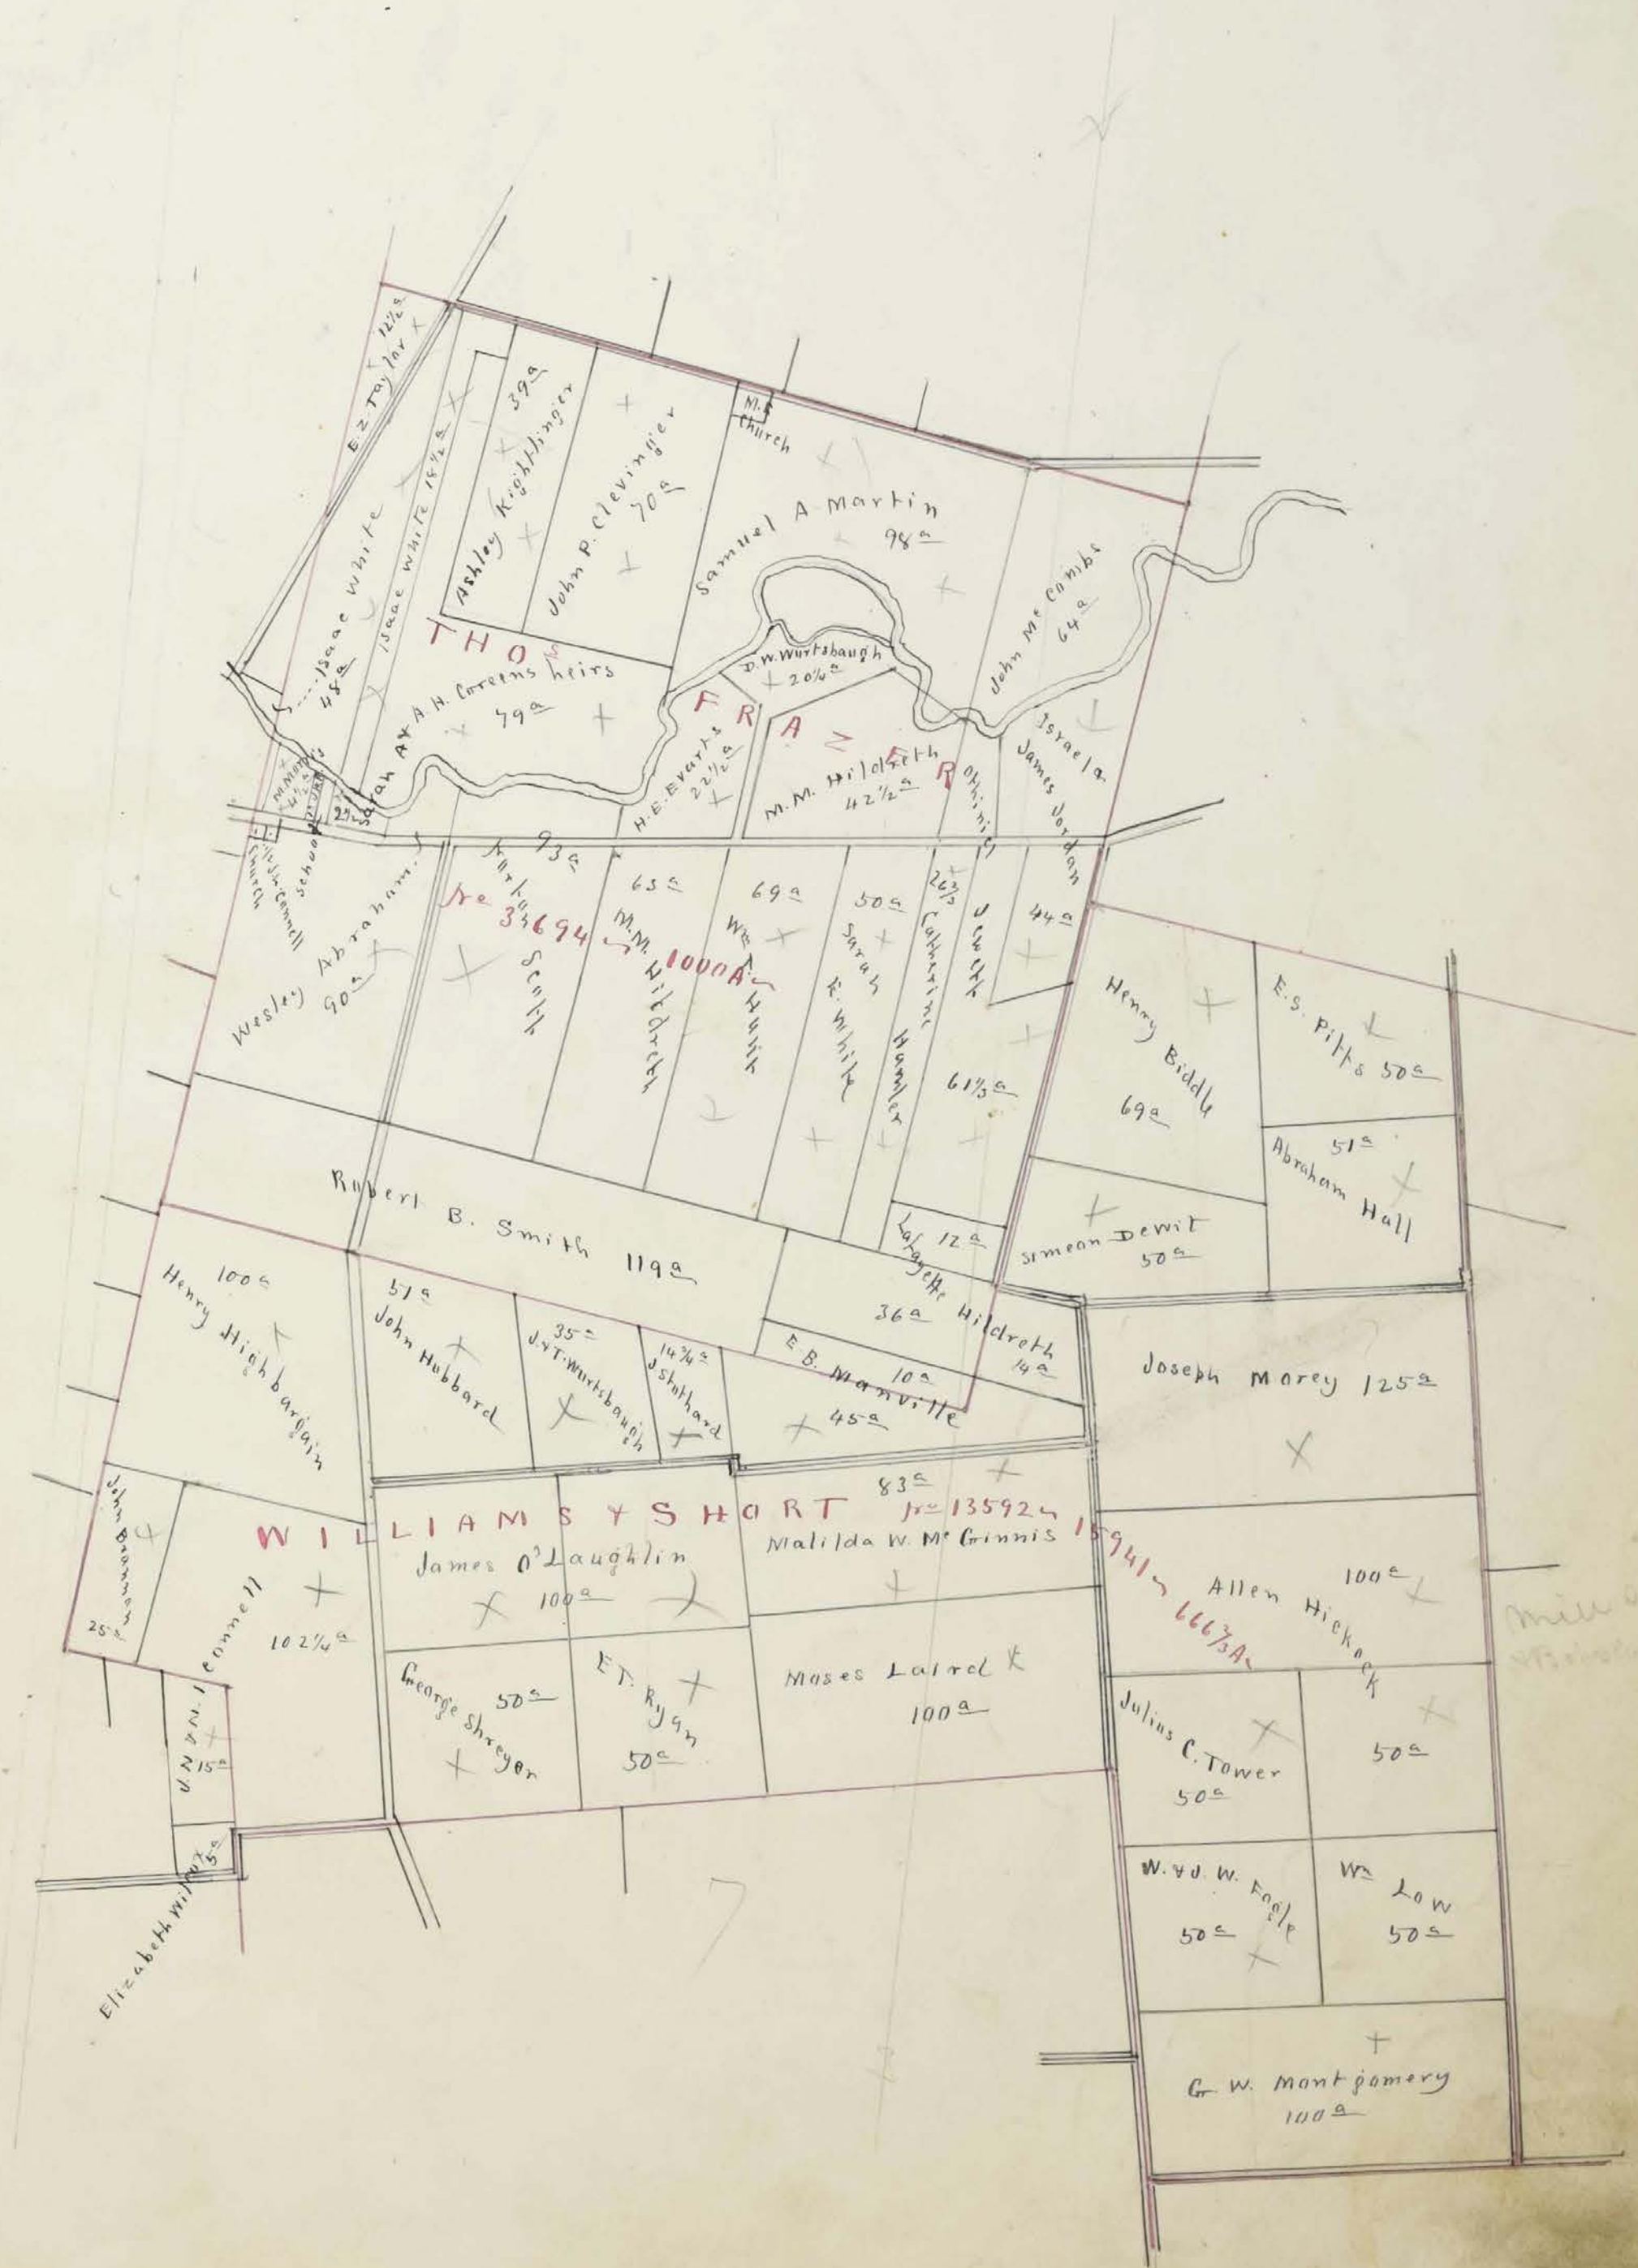 12½a
E. Z. Taylor
Isaac White
48a
Isaac White 18½a
39a
Ashley Kightlinger
John P. Clevinger
70a
M.E
Church
Samuel A Martin
98a
John Mc Combs
64a
THOS
FRAZER
Sarah A & A. H. Greens heirs
79a
D. W. Wurtsbaugh
20¼a
H. E. Evarts
22½a
M. M. Hildreth
42½a
Israel &
James Jordan
44a
Church
School
Wesley Abraham
90a
93a
Scott
63a
M. M. Hildreth
69a
Wm
50a
Sarah
E. White
26⅔
Catharine
Hamler
Jewett
61⅓a
No 3694
1000A
Henry Biddle
69a
E. S. Pitts 50a
51a
Abraham Hall
Simeon Dewit
50a
Robert B. Smith 119a
12a
Lafayette Hildreth
36a
14a
E. B. Manville
10a
45a
100a
Henry Highbargain
51a
John Hubbard
35a
J. & T. Wurtsbaugh
14¾a
J Stothard
Joseph Morey 125a
John Brannon
25a
WILLIAMS & SHORT No 13592
1594
666⅔A
83a
Matilda W. Mc Ginnis
James O'Laughlin
100a
J. N & N. I Connell
102¼a
15a
5a
Elizabeth Wilcox
George Shreyer
50a
E T. Ryan
50a
Moses Laird
100a
Allen Hickock
100a
50a
Julius C. Tower
50a
W. & J. W. Fogle
50a
Wm Low
50a
G. W. Montgomery
100a